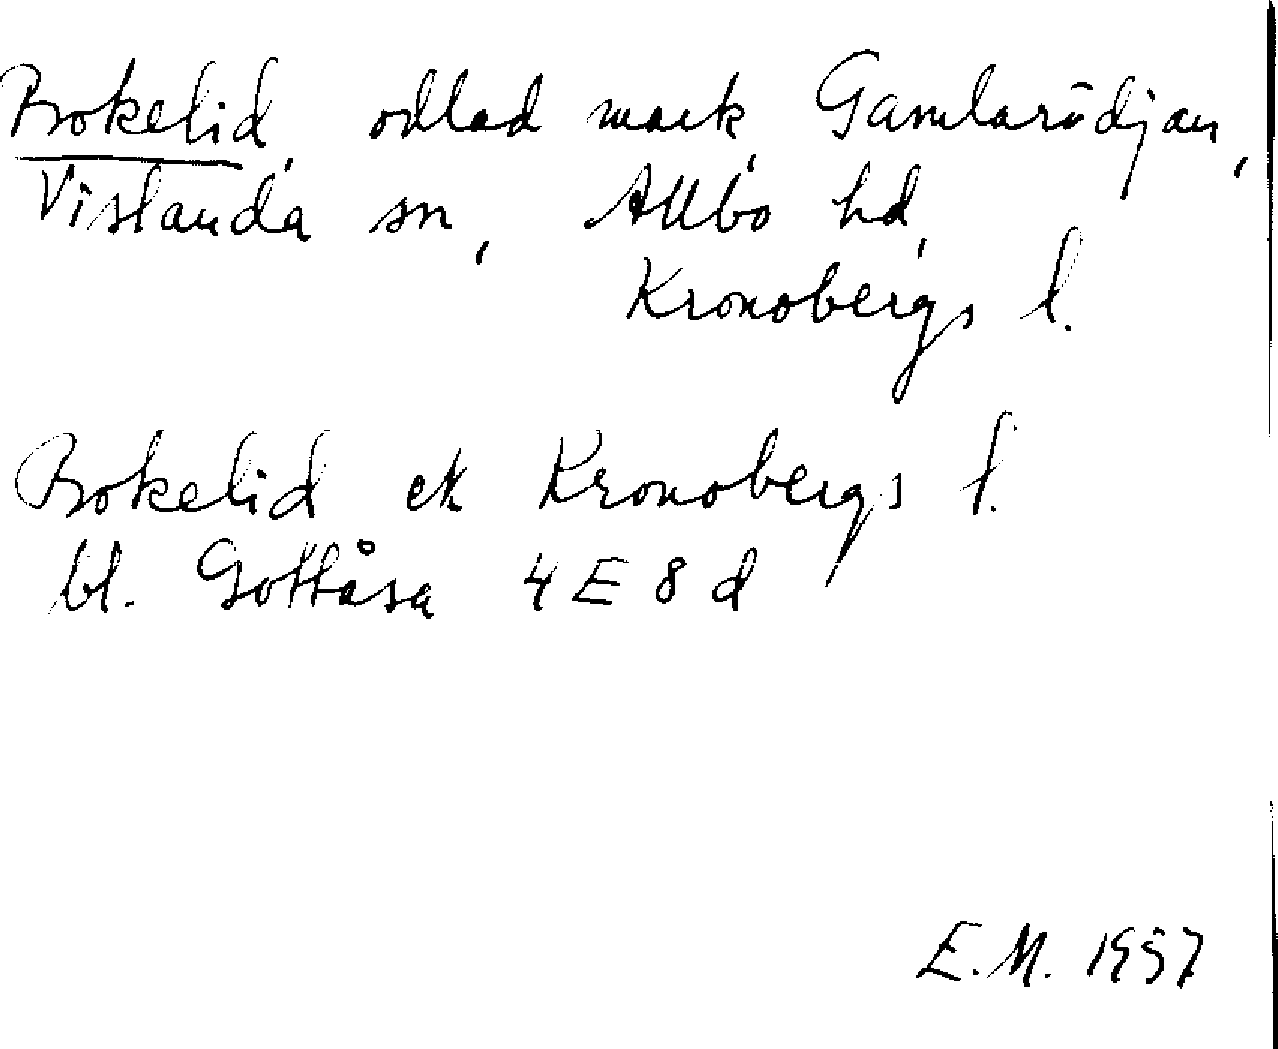 Brokelid, odlad mark, Gamlarödjan,
Vislanda sn, Allbo hd,
Kronobergs l.
Brokelid ek Kronobergs l.
bl. Gottåsa 4 E 8 d
E.M. 1957